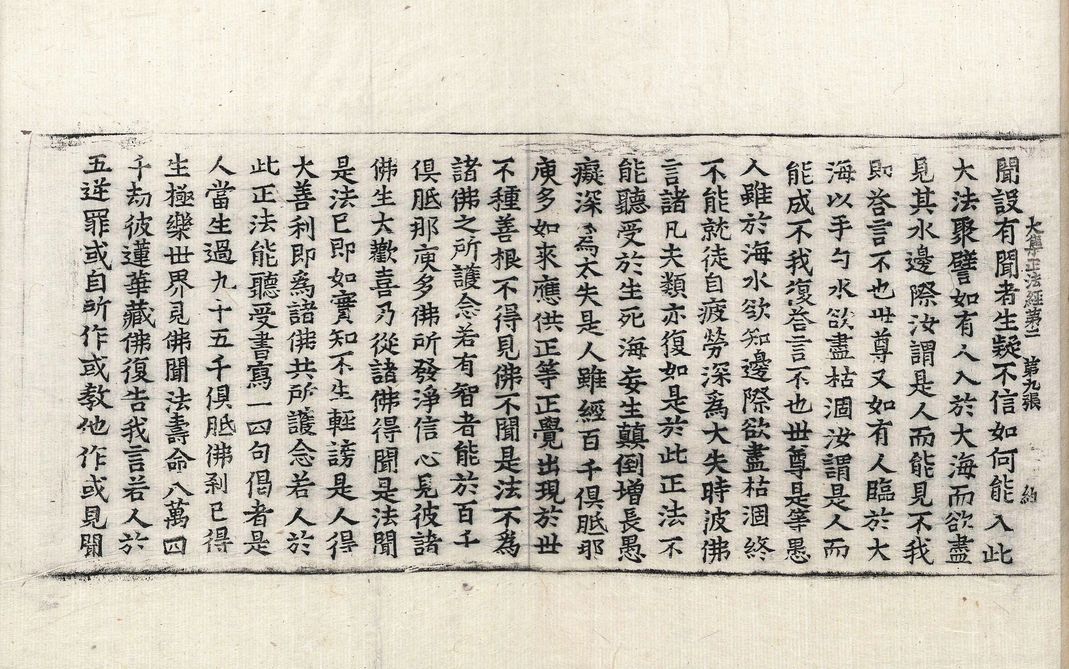 大集正法經第二 第九張 約
聞設有聞者生疑不信如何能入此
大法聚譬如有人入於大海而欲盡
見其水邊際汝謂是人而能見不我
即荅言不也世尊又如有人臨於大
海以手勺水欲盡枯涸汝謂是人而
能成不我復荅言不也世尊是等愚
人雖於海水欲知邊際欲盡枯涸終
不能就徒自疲勞深爲大失時彼佛
言諸凡夫類亦復如是於此正法不
能聽受於生死海妄生顛倒增長愚
癡深爲大失是人雖經百千俱胝那
庾多如來應供正等正覺出現於世
不種善根不得見佛不聞是法不爲
諸佛之所護念若有智者能於百千
俱胝那庾多佛所發淨信心見彼諸
佛生大歡喜乃從諸佛得聞是法聞
是法已即如實知不生輕謗是人得
大善利即爲諸佛共所護念若人於
此正法能聽受書寫一四句偈者是
人當生過九十五千俱胝佛剎已得
生極樂世界見佛聞法壽命八萬四
千劫彼蓮華藏佛復告我言若人於
五逆罪或自所作或教他作或見聞